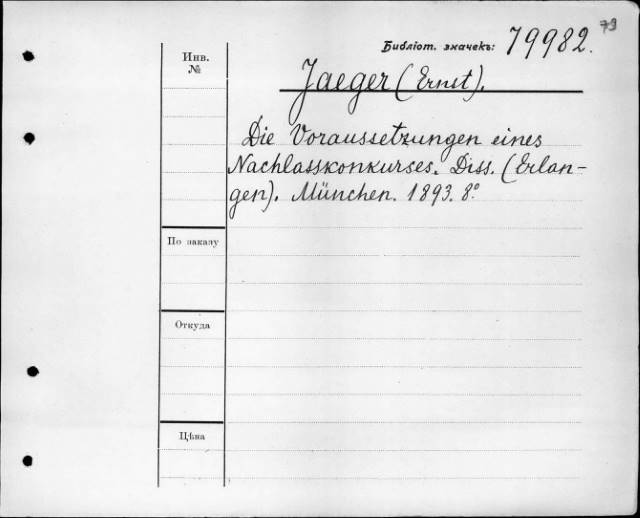 79
Библіот. значекъ: 79982.
Инв. №
Jaeger (Ernst).
Die Voraussetzungen eines
Nachlasskonkurses. Diss. (Erlan-
gen). München. 1893. 8°
По заказу
Откуда
Цѣна